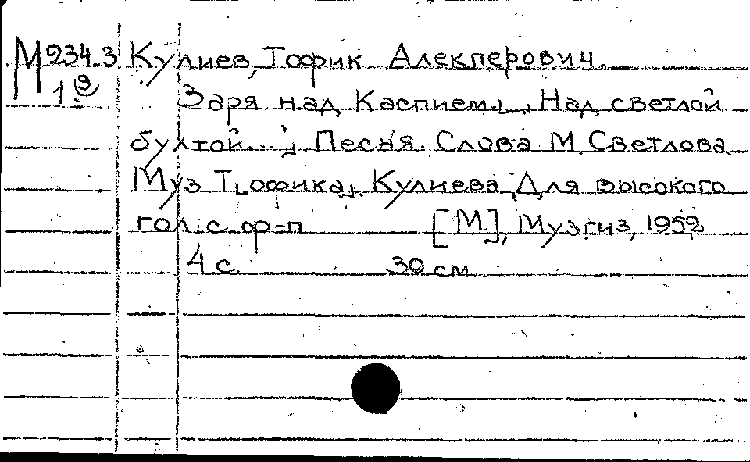 М 234.3 Кулиев, Тофик Алекперович.
1 9
Заря над Каспием. „Над светлой
бухтой...“ Песня. Слова М. Светлова
Муз Т[офика] Кулиева, Для высокого
гол. с. ф-п [М], Музгиз, 1952
4 с. 30 см